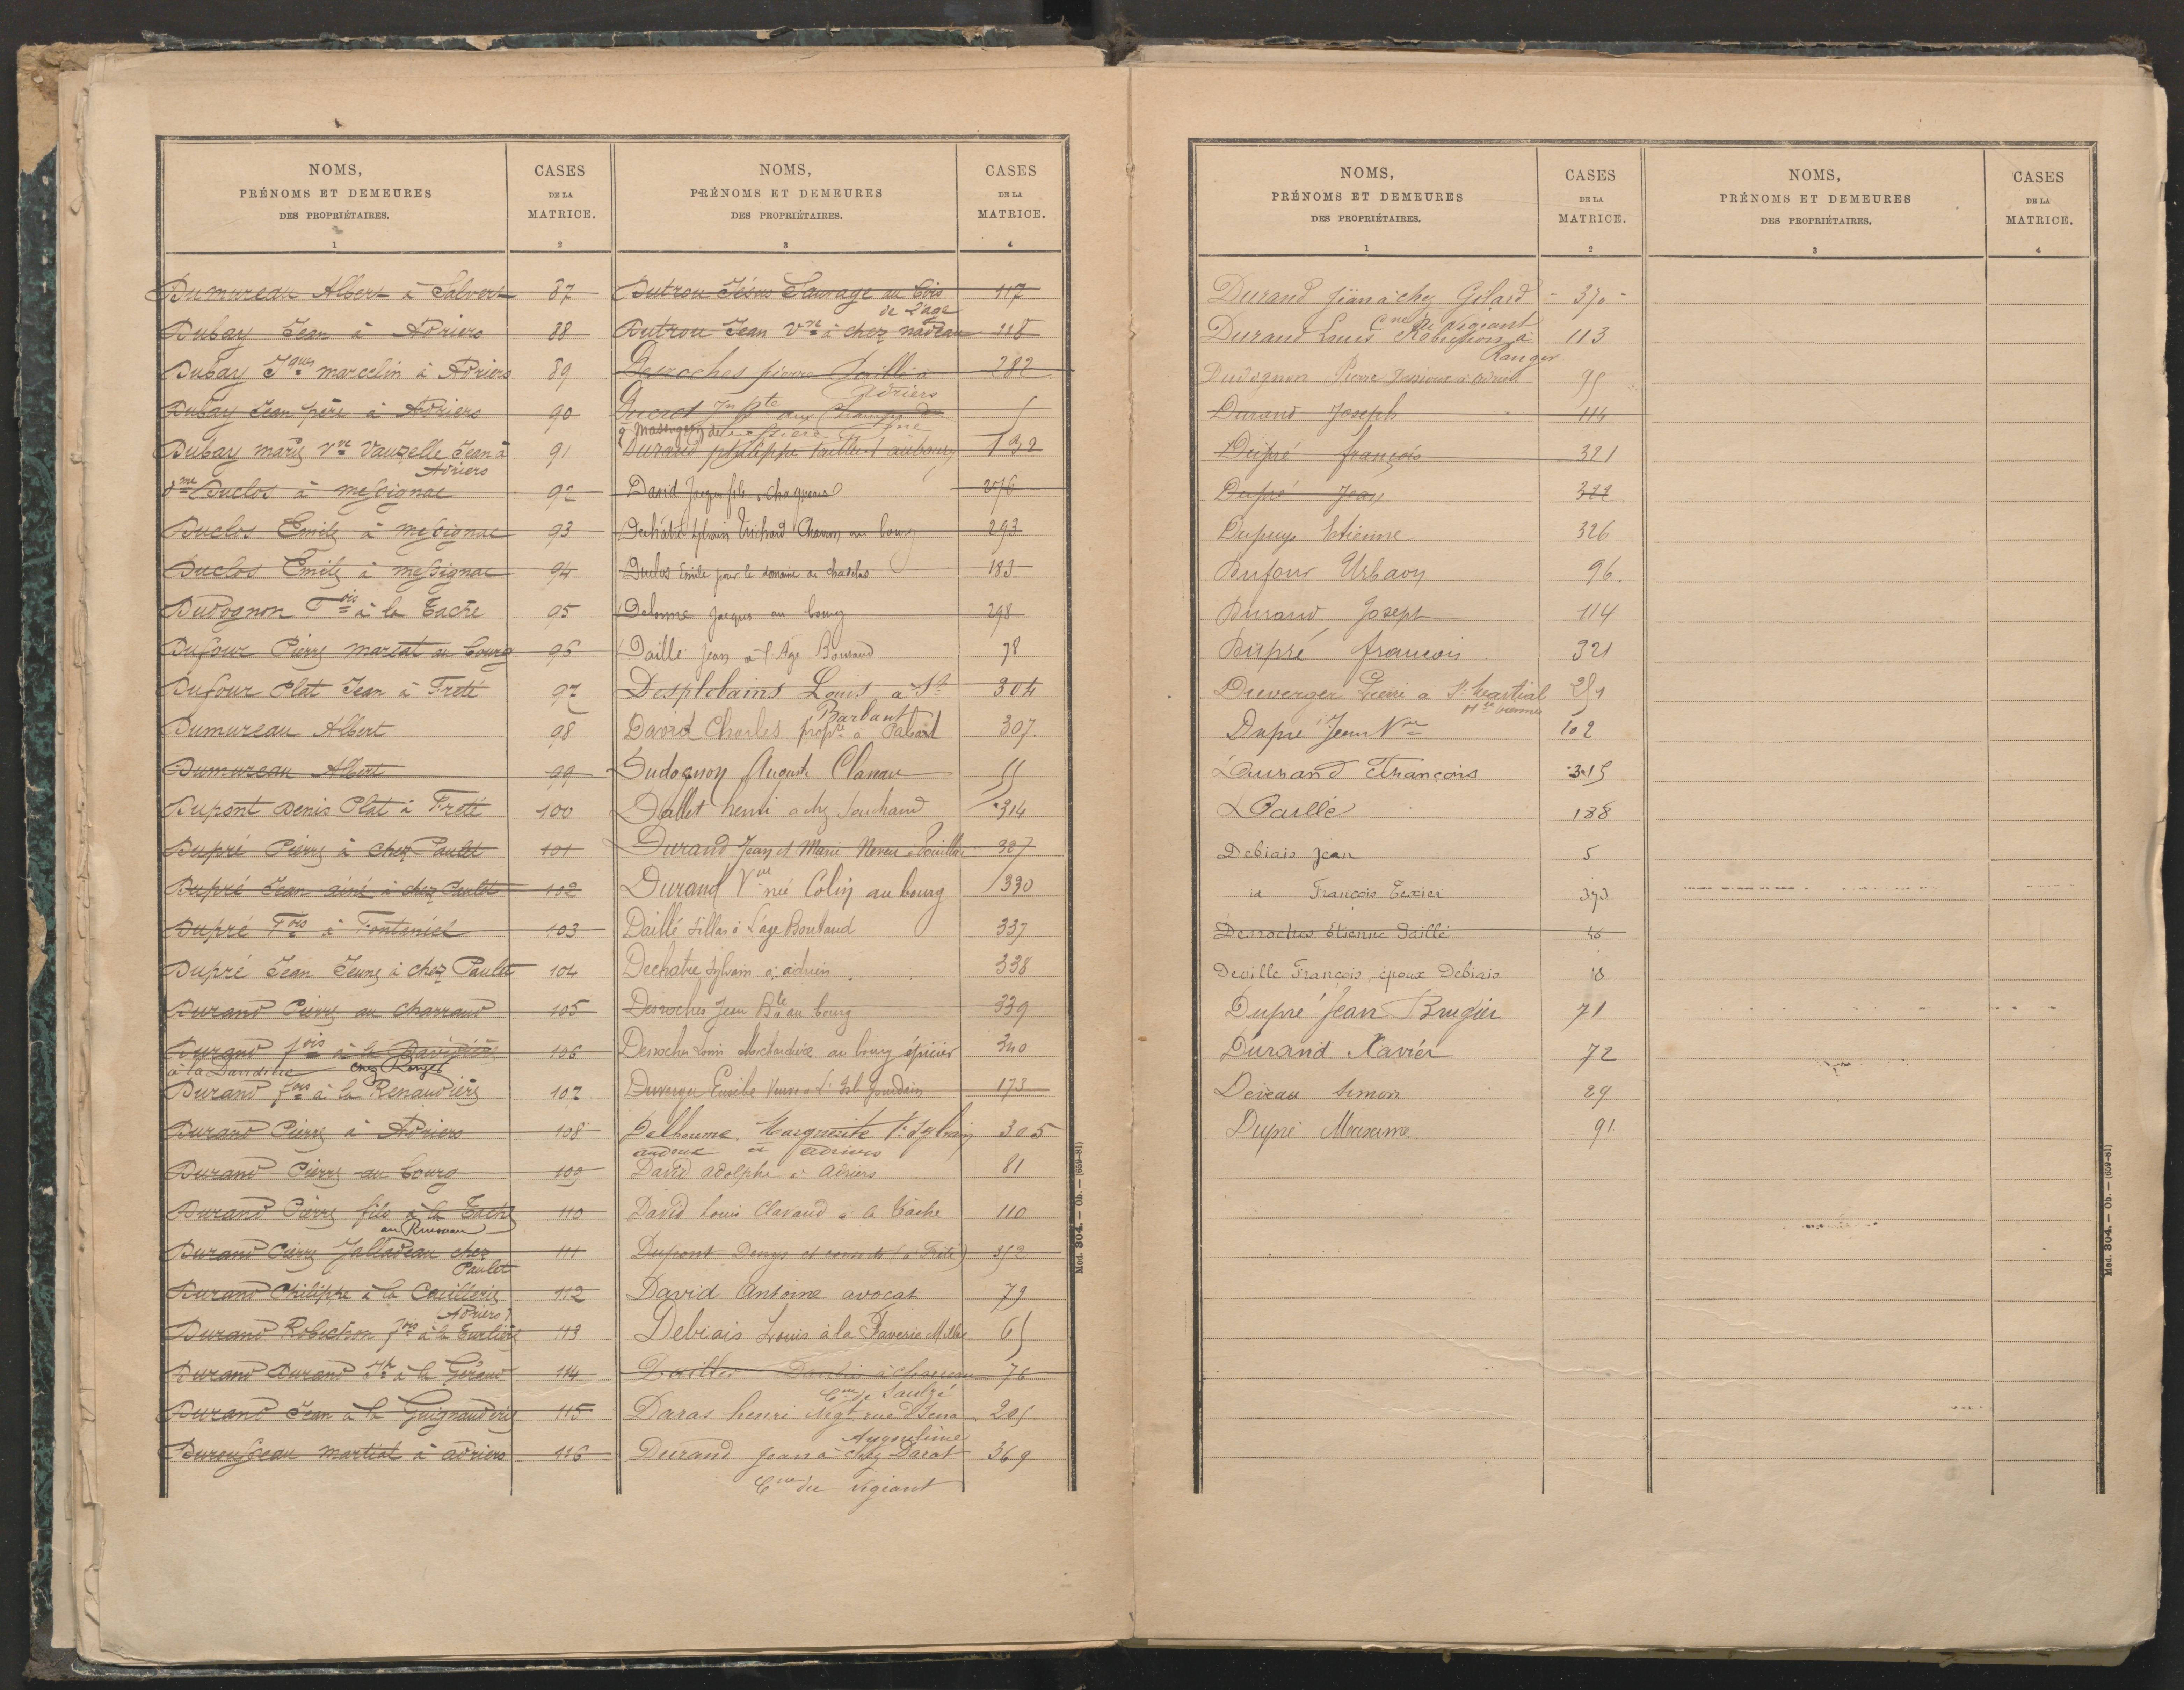 NOMS,
PRÉNOMS ET DEMEURES
DES PROPRIÉTAIRES.
1
CASES
DE LA
MATRICE.
2
Dumureau Albert à Salvert 87
Dubay Jean à Adriers 88
Dubay Jques marcelin à Adriers 89
Dubay Jean père à Adriers 90
Dubay marie Vve Vauzelle Jean à 91
Adriers
Duclos à messignac 92
Duclos Emile à messignac 93
Duclos Emile à messignac 94
Dudognon Fois à la Tache 95
Dufour Pierre marsat au bourg 96
Dufour Plat Jean à Freté 97
Dumureau Albert 98
Dumureau Albert 99
Dupont Denis Plat à Freté 100
Dupré Pierre à chez Paulet 101
Dupré Jean ainé à chez Paulet 102
Dupré Fois à Fonteniet 103
Dupré Jean Jeune à chez Paulet 104
Durand Pierre au Charraud 105
Durand fois à la 106
à la chez Ranger
Durand fois à la Renaudière 107
Durand Pierre à Adriers 108
Durand Pierre au bourg 109
Durand Pierre fils à la Tache 110
au Ruisseau
Durand Pierre Jalladeau chez 111
Paulet
Durand Philippe à la Caillerie 112
(Adriers)
Durand Robichon fois à la 113
Durand Durand à la 114
Durand Jean à la Guignauderie 115
Durousseau martial à adriers 116
NOMS,
PRÉNOMS ET DEMEURES
DES PROPRIÉTAIRES.
3
CASES
DE LA
MATRICE.
4
Dutrou Jésus Sauvage au bois 117
de l'age
Dutrou Jean Vve à chez nadeau 118
Desroches pierre à 282
adriers
aux
Durand philippe au bourg 132
David Jacques fils 276
Sylvain au bourg 293
Duclos Emile pour le domaine de 183
Delorme Jacques au bourg 298
Daille Jean à l'Age Bouraud 78
Desplobains Louis à St 304
Barbant
David Charles propre à 307
Dudognon Auguste
Dallet henri a chez 314
Durand Jean et Marie Neveu 327
Durand Vve née Colin au bourg 330
Daillé à L'age Bouraud 337
Dechatre Sylvain à adriers 338
Desroches Jean Bte au bourg 339
Desroches Louis au bourg épicier 340
Duverger Veuve Jourdain 173
Delhoume Marguerite 305
à adriers
David adolphe à Adriers 81
David Louis Clavaud à la Tâche 110
Dupont Denys et consorts (à Freté) 352
David Antoine avocat 79
Debiais Louis à la Faverie 65
76
Cne de Saulgé
Daras henri Négt rue d'Iena 205
Angoulême
Durand Jean à chez Darat 369
Cne du Vigeant
Mod. 304. — Ob. — (659-81)
NOMS,
PRÉNOMS ET DEMEURES
DES PROPRIÉTAIRES.
1
CASES
DE LA
MATRICE.
2
NOMS,
PRÉNOMS ET DEMEURES
DES PROPRIÉTAIRES.
3
CASES
DE LA
MATRICE.
4
Durand Jean à chez Gilard 370
Cne du Vigeant
Durand Louis Robuchon à 113
Ranger
Dudognon Pierre à 95
Durand Joseph 114
Dupré françois 321
Dupré Jean 322
Dupuy Etienne 326
Dufour Urbain 96.
Durand Joseph 114
Dupré francois 321
Duverger Pierre a St Martial 251
Hte Vienne
Dupré Jean Vve 102
Durand François 315
Daillé 188
Debiais Jean 5
id François Texier 373
Desroches Etienne Daillé
Deville François, époux Debiais 18
Dupré Jean Brugier 71
Durand Xavier 72
Deveau Simon 29
Dupré Maxime 91.
Mod. 304. — Ob. — (659-81)